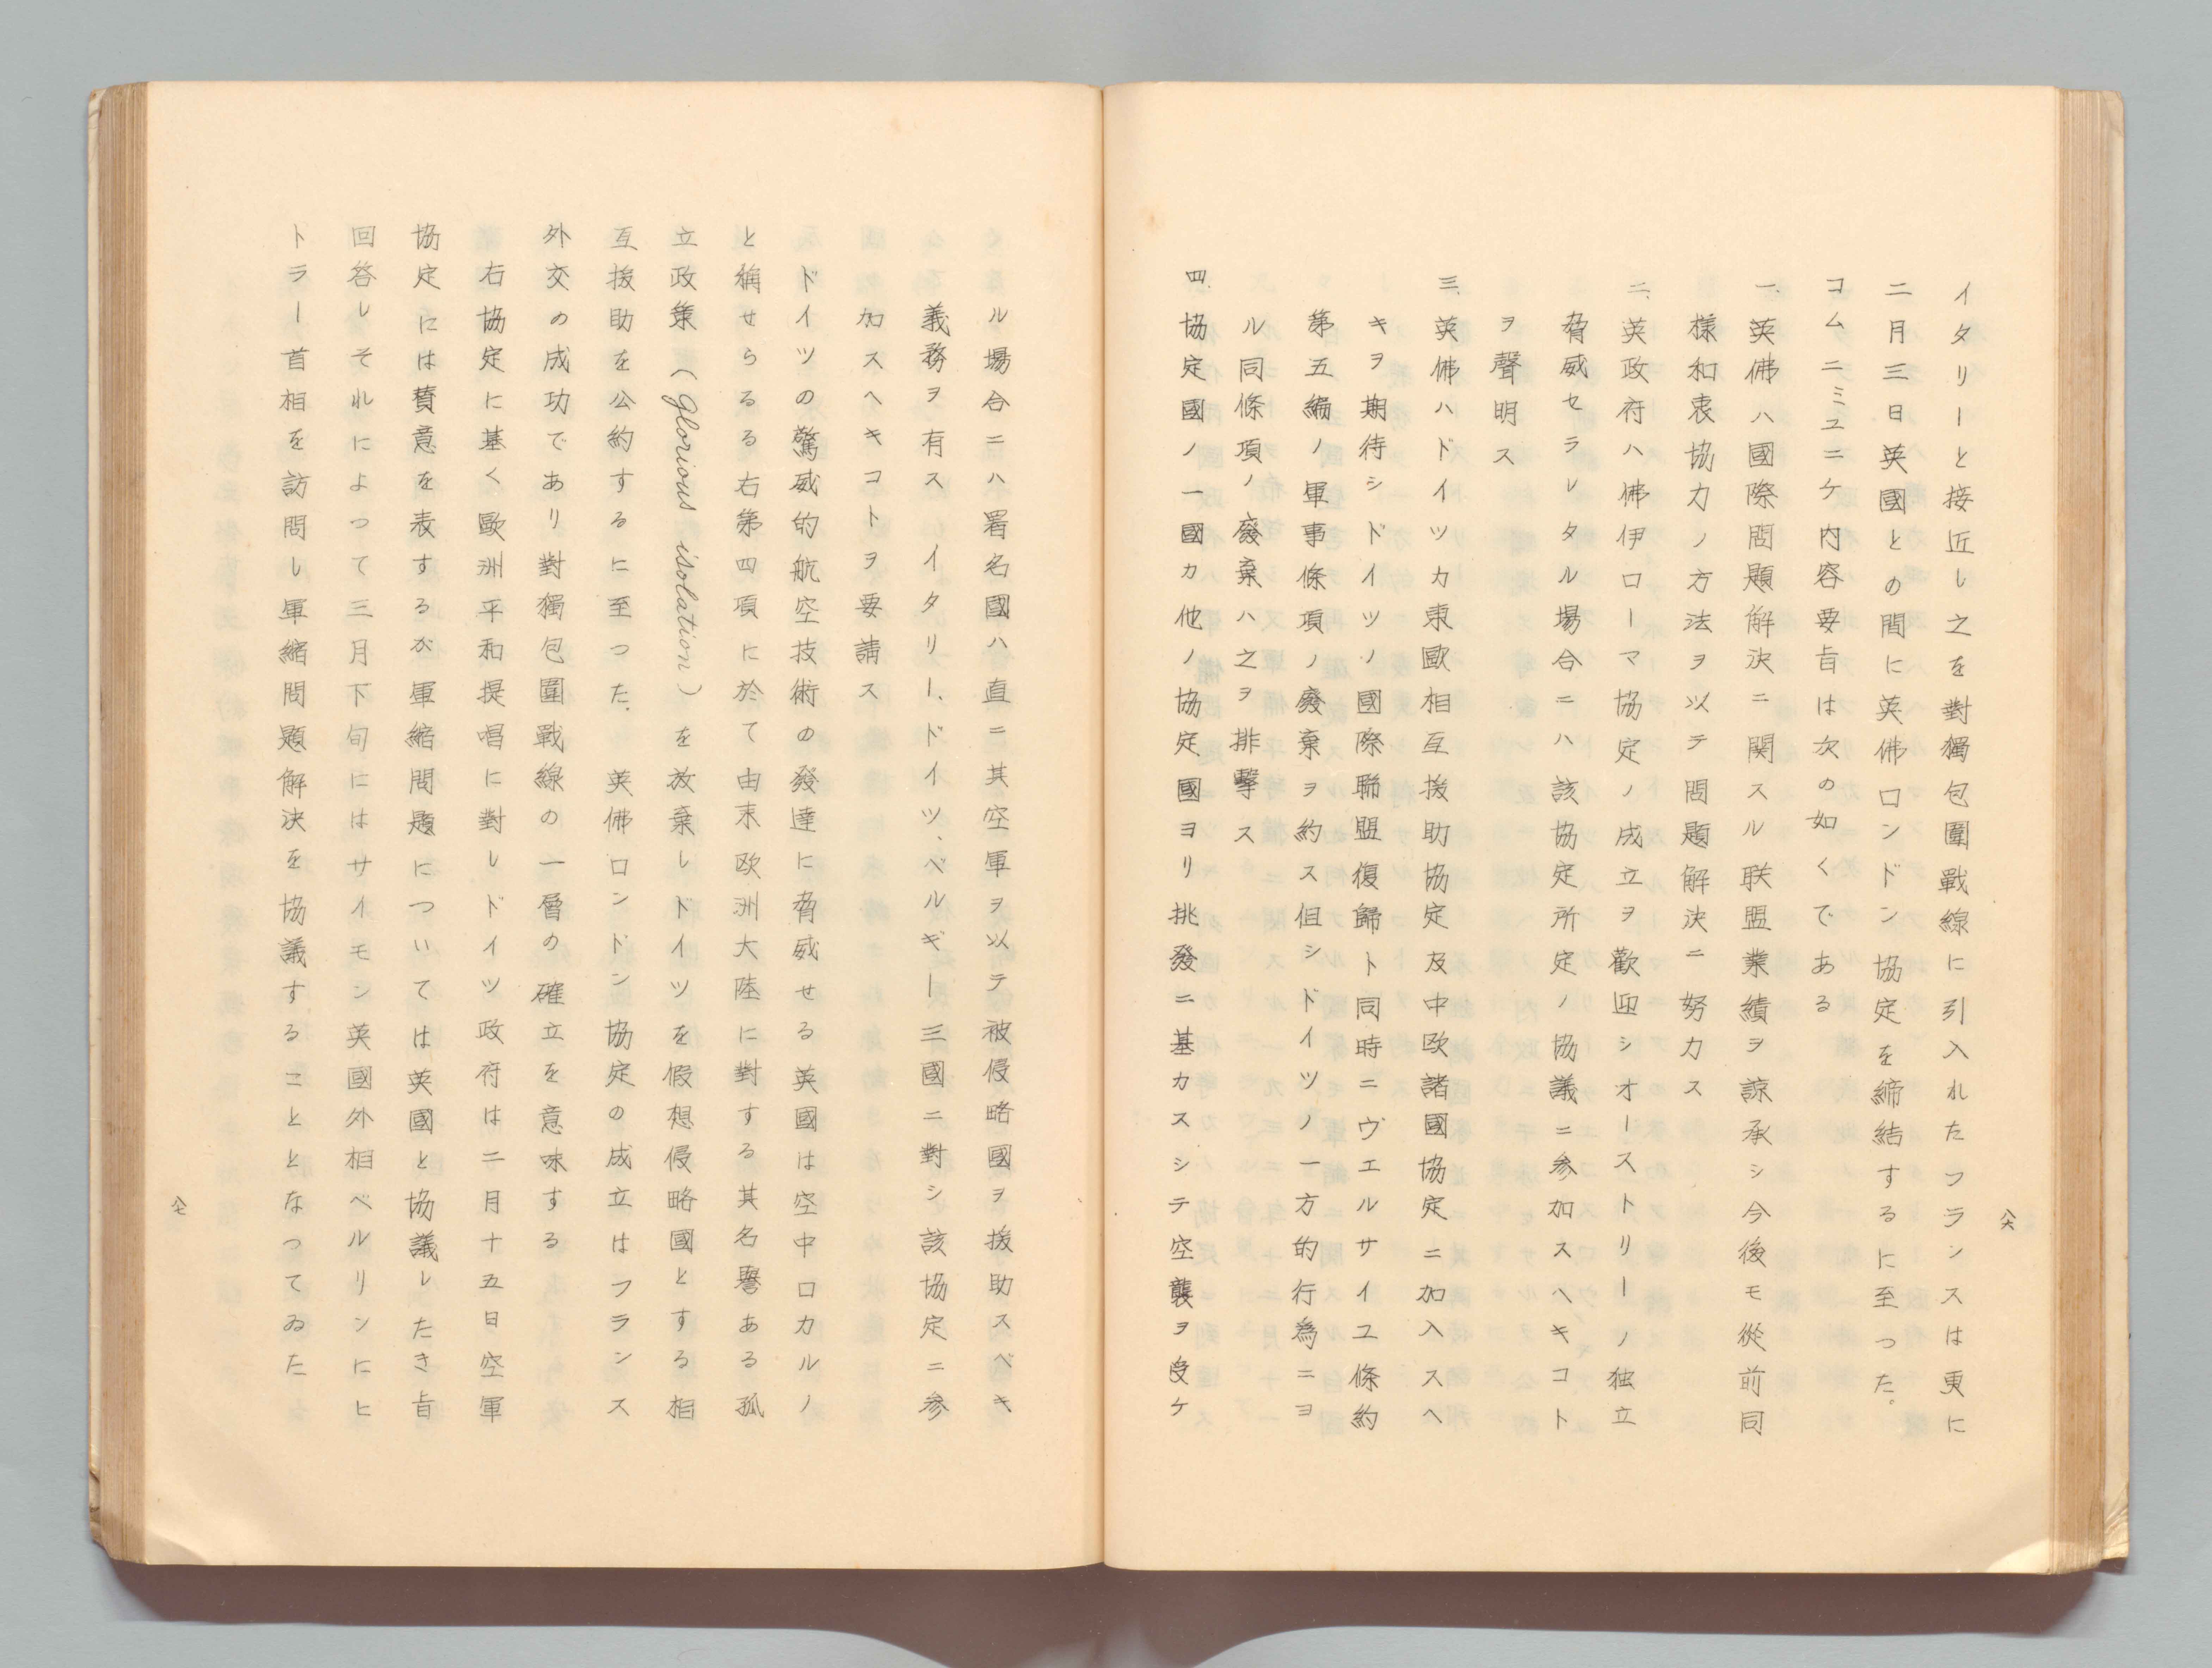 イタリーと接近し之を對獨包圍戰線に引入れたフランスは更に
二月三日英國との間に英佛ロンドン協定を締結するに至つた。
コムニミユニケ内容要旨は次の如くである
一、英佛ハ國際問題解決ニ関スル联盟業績ヲ諒承シ今後モ從前同
様和衷協力ノ方法ヲ以テ問題解決ニ努力ス
二、英政府ハ佛伊ローマ協定ノ成立ヲ歡迎シオーストリーノ独立
脅威セラレタル場合ニハ該協定所定ノ協議ニ参加スヘキコト
ヲ聲明ス
三、英佛ハドイツカ東歐相互援助協定及中欧諸國協定ニ加入スヘ
キヲ期待シドイツノ國際聯盟復歸ト同時ニヴエルサイユ條約
第五編ノ軍事條項ノ廢棄ヲ約ス但シドイツノ一方的行為ニヨ
ル同條項ノ廢棄ハ之ヲ排撃ス
四、協定國ノ一國カ他ノ協定國ヨリ挑發ニ基カスシテ空襲ヲ受ケ
八六
ル場合ニハ署名國ハ直ニ其空軍ヲ以テ被侵略國ヲ援助スベキ
義務ヲ有ス　イタリー、ドイツ、ベルギー三國ニ對シ該協定ニ参
加スヘキコトヲ要請ス
ドイツの驚威的航空技術の發達に脅威せる英國は空中ロカルノ
と稱せらるる右第四項に於て由来欧洲大陸に對する其名譽ある孤
立政策（glorious isolation）を放棄しドイツを假想侵略國とする相
互援助を公約するに至つた、英佛ロンドン協定の成立はフランス
外交の成功であり對獨包圍戰線の一層の確立を意味する
右協定に基く歐洲平和提唱に對しドイツ政府は二月十五日空軍
協定には賛意を表するが軍縮問題については英國と協議したき旨
回答しそれによつて三月下旬にはサイモン英國外相ベルリンにヒ
トラー首相を訪問し軍縮問題解決を協議することとなつてゐた
八七